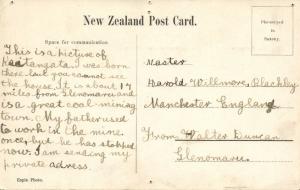 New Zealand Post Card.
Space for communication
This is a picture of
Kaitangata. I was born
there but you cannot see
the house. It is about 17
miles from Glenomaru, and
is a great coal-mining
town. My father used
to work in the mine
once, but he has stopped
now. I am sending my
private adress.
Esple Photo.
Master
Harold Willmore, Blackley
Manchester England
From Walter Duncan
Glenomaru